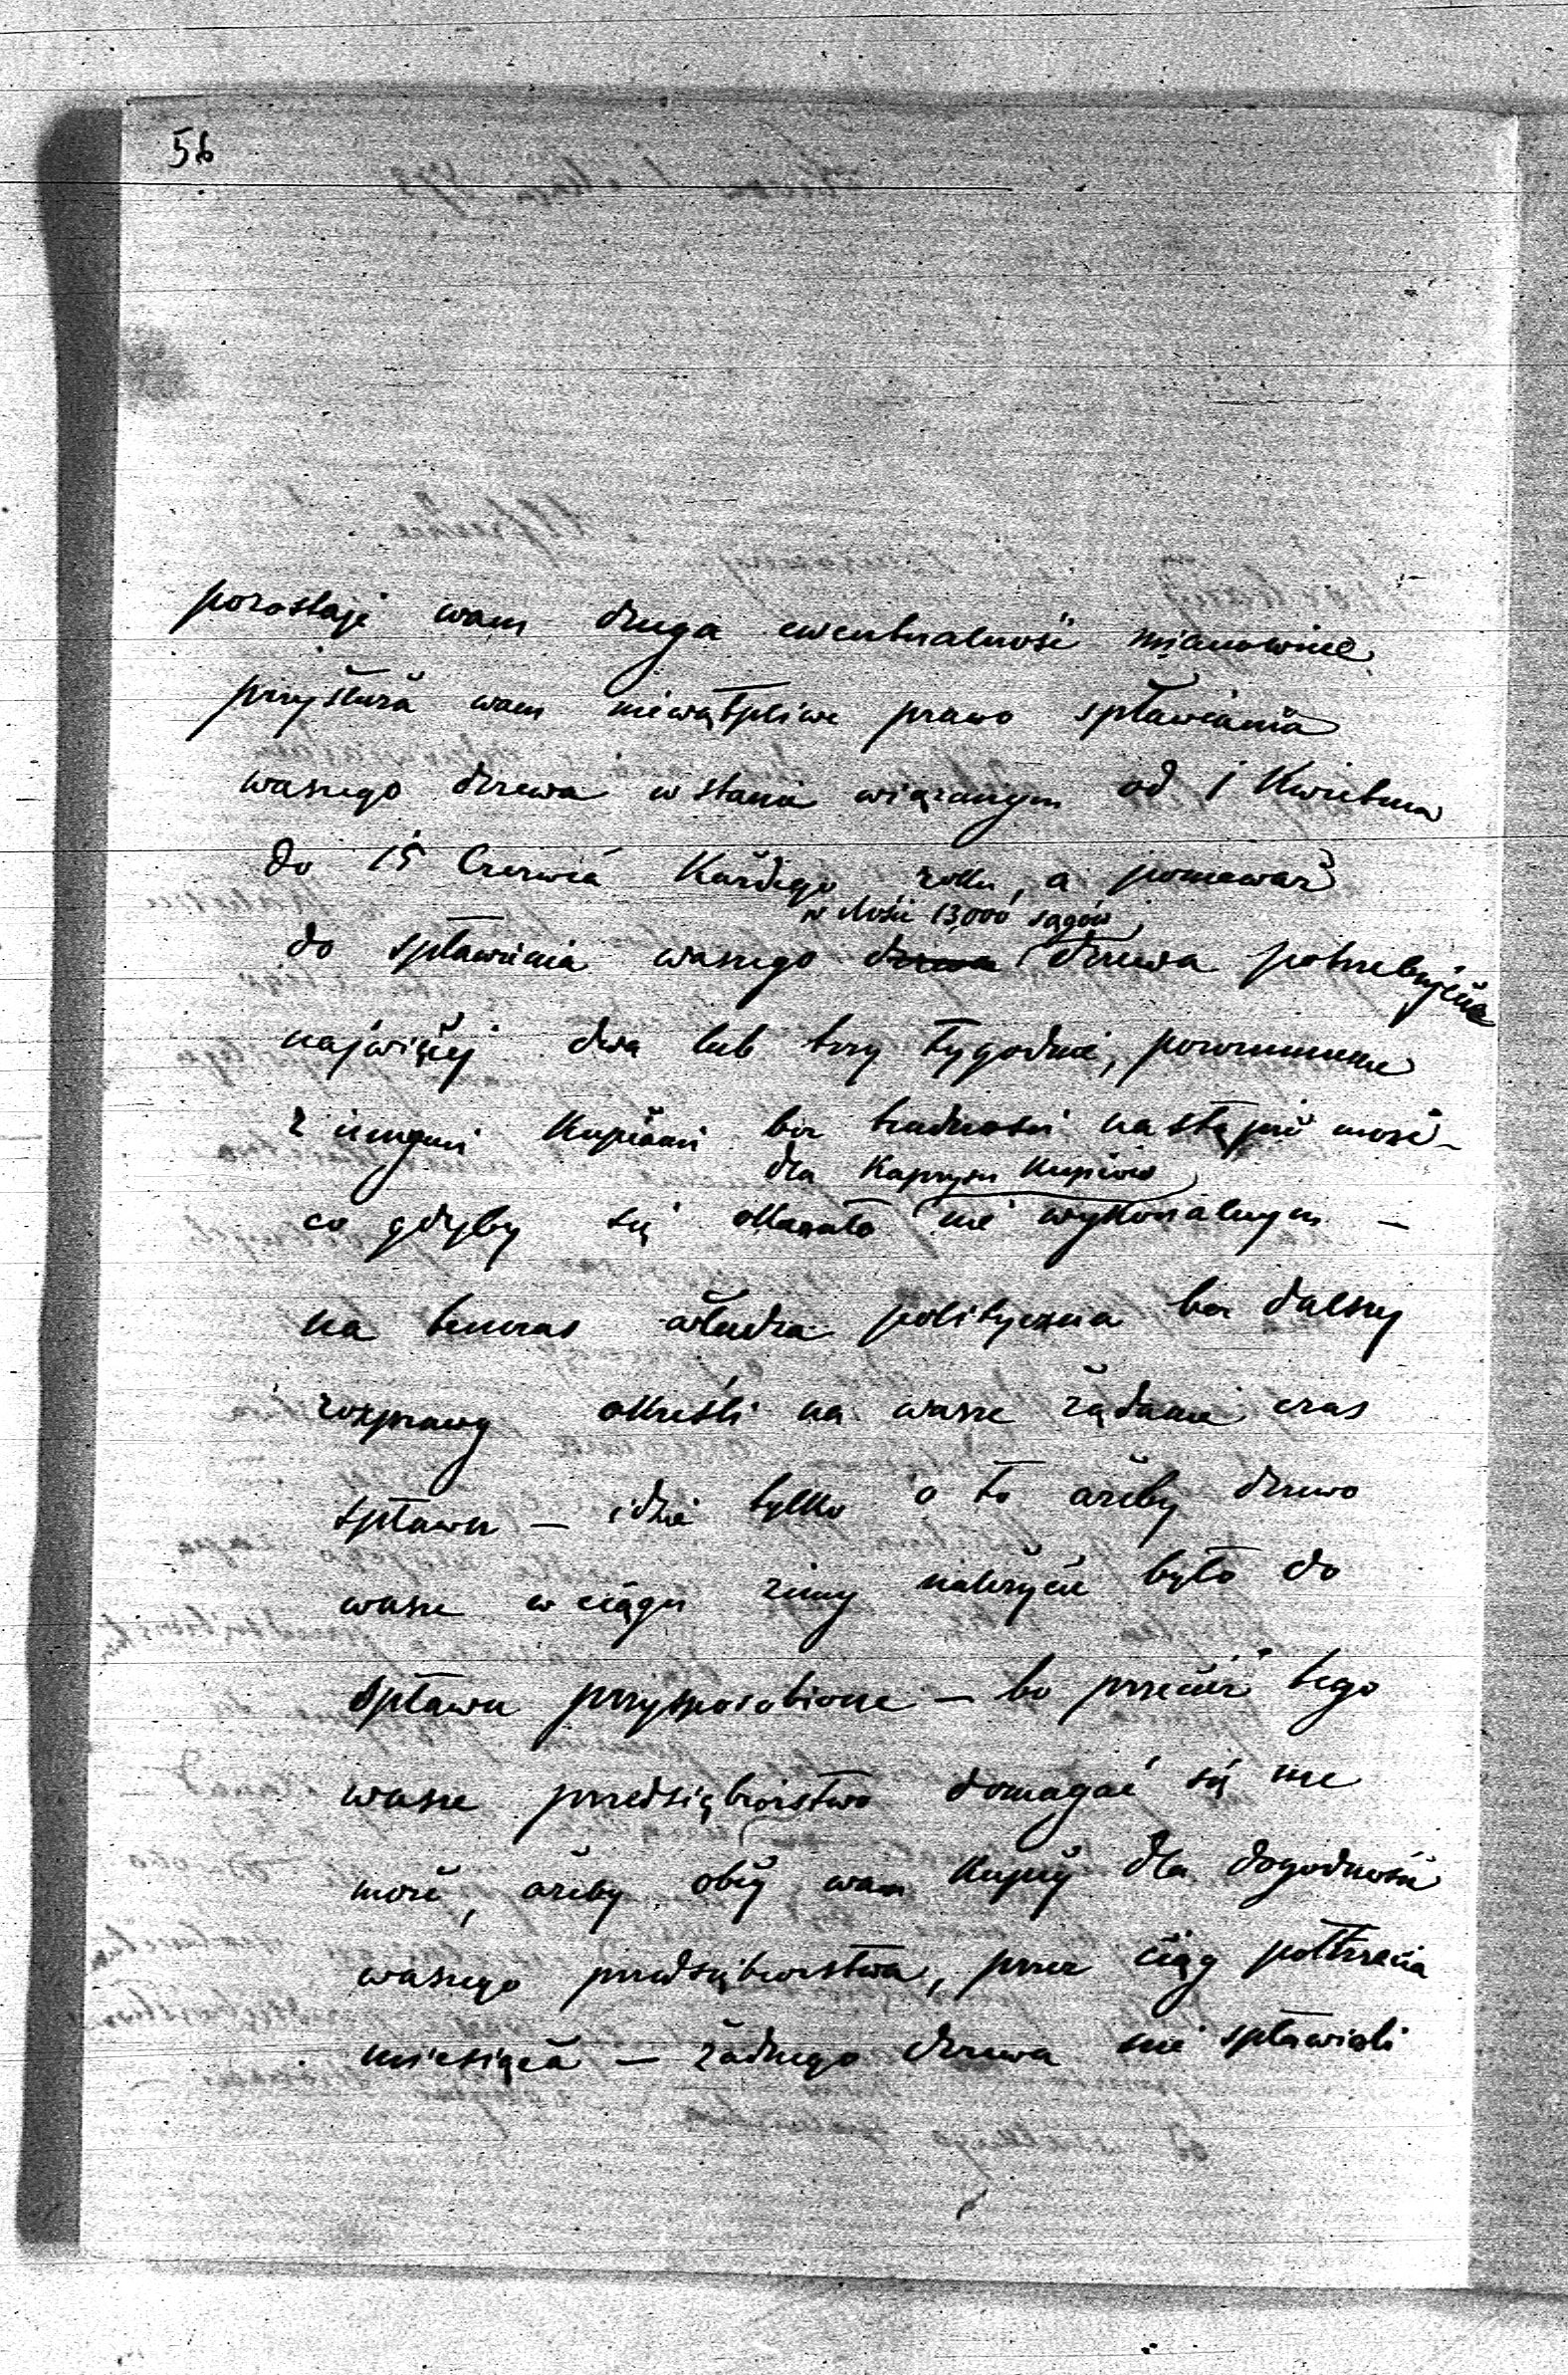 56
pozostaje wam druga ewentualność mianowicie
przysłuża wam niewątpliwe prawo spławiania
waszego drzewa w stanie wiązanym od 1 Kwietnia
do 15 Czerwca Każdego roku, a ponieważ
w ilości 13,000 sągów
do spławienia waszego drzewa drzewa potrzebujecie
najwięcej dwa lub trzy tygodnie, porozumienie
z innymi Kupcami bez trudności nastąpić może –
dla Kaprysu Kupców
co gdyby się okazało nie wykonalnym –
na tenczas władza polityczna bez dalszej
rozprawy określi na wasze żądanie czas
spławu – idzie tylko o to ażeby drzewo
wasze w ciągu zimy należycie było do
spławu przysposobione – bo przecież tego
wasze przedsiębiorstwo domagać się nie
może, ażeby obcy wam Kupcy dla dogodności
waszego przedsiębiorstwa, przez ciąg półtrzecia
miesiąca – żadnego drzewa nie spławiali